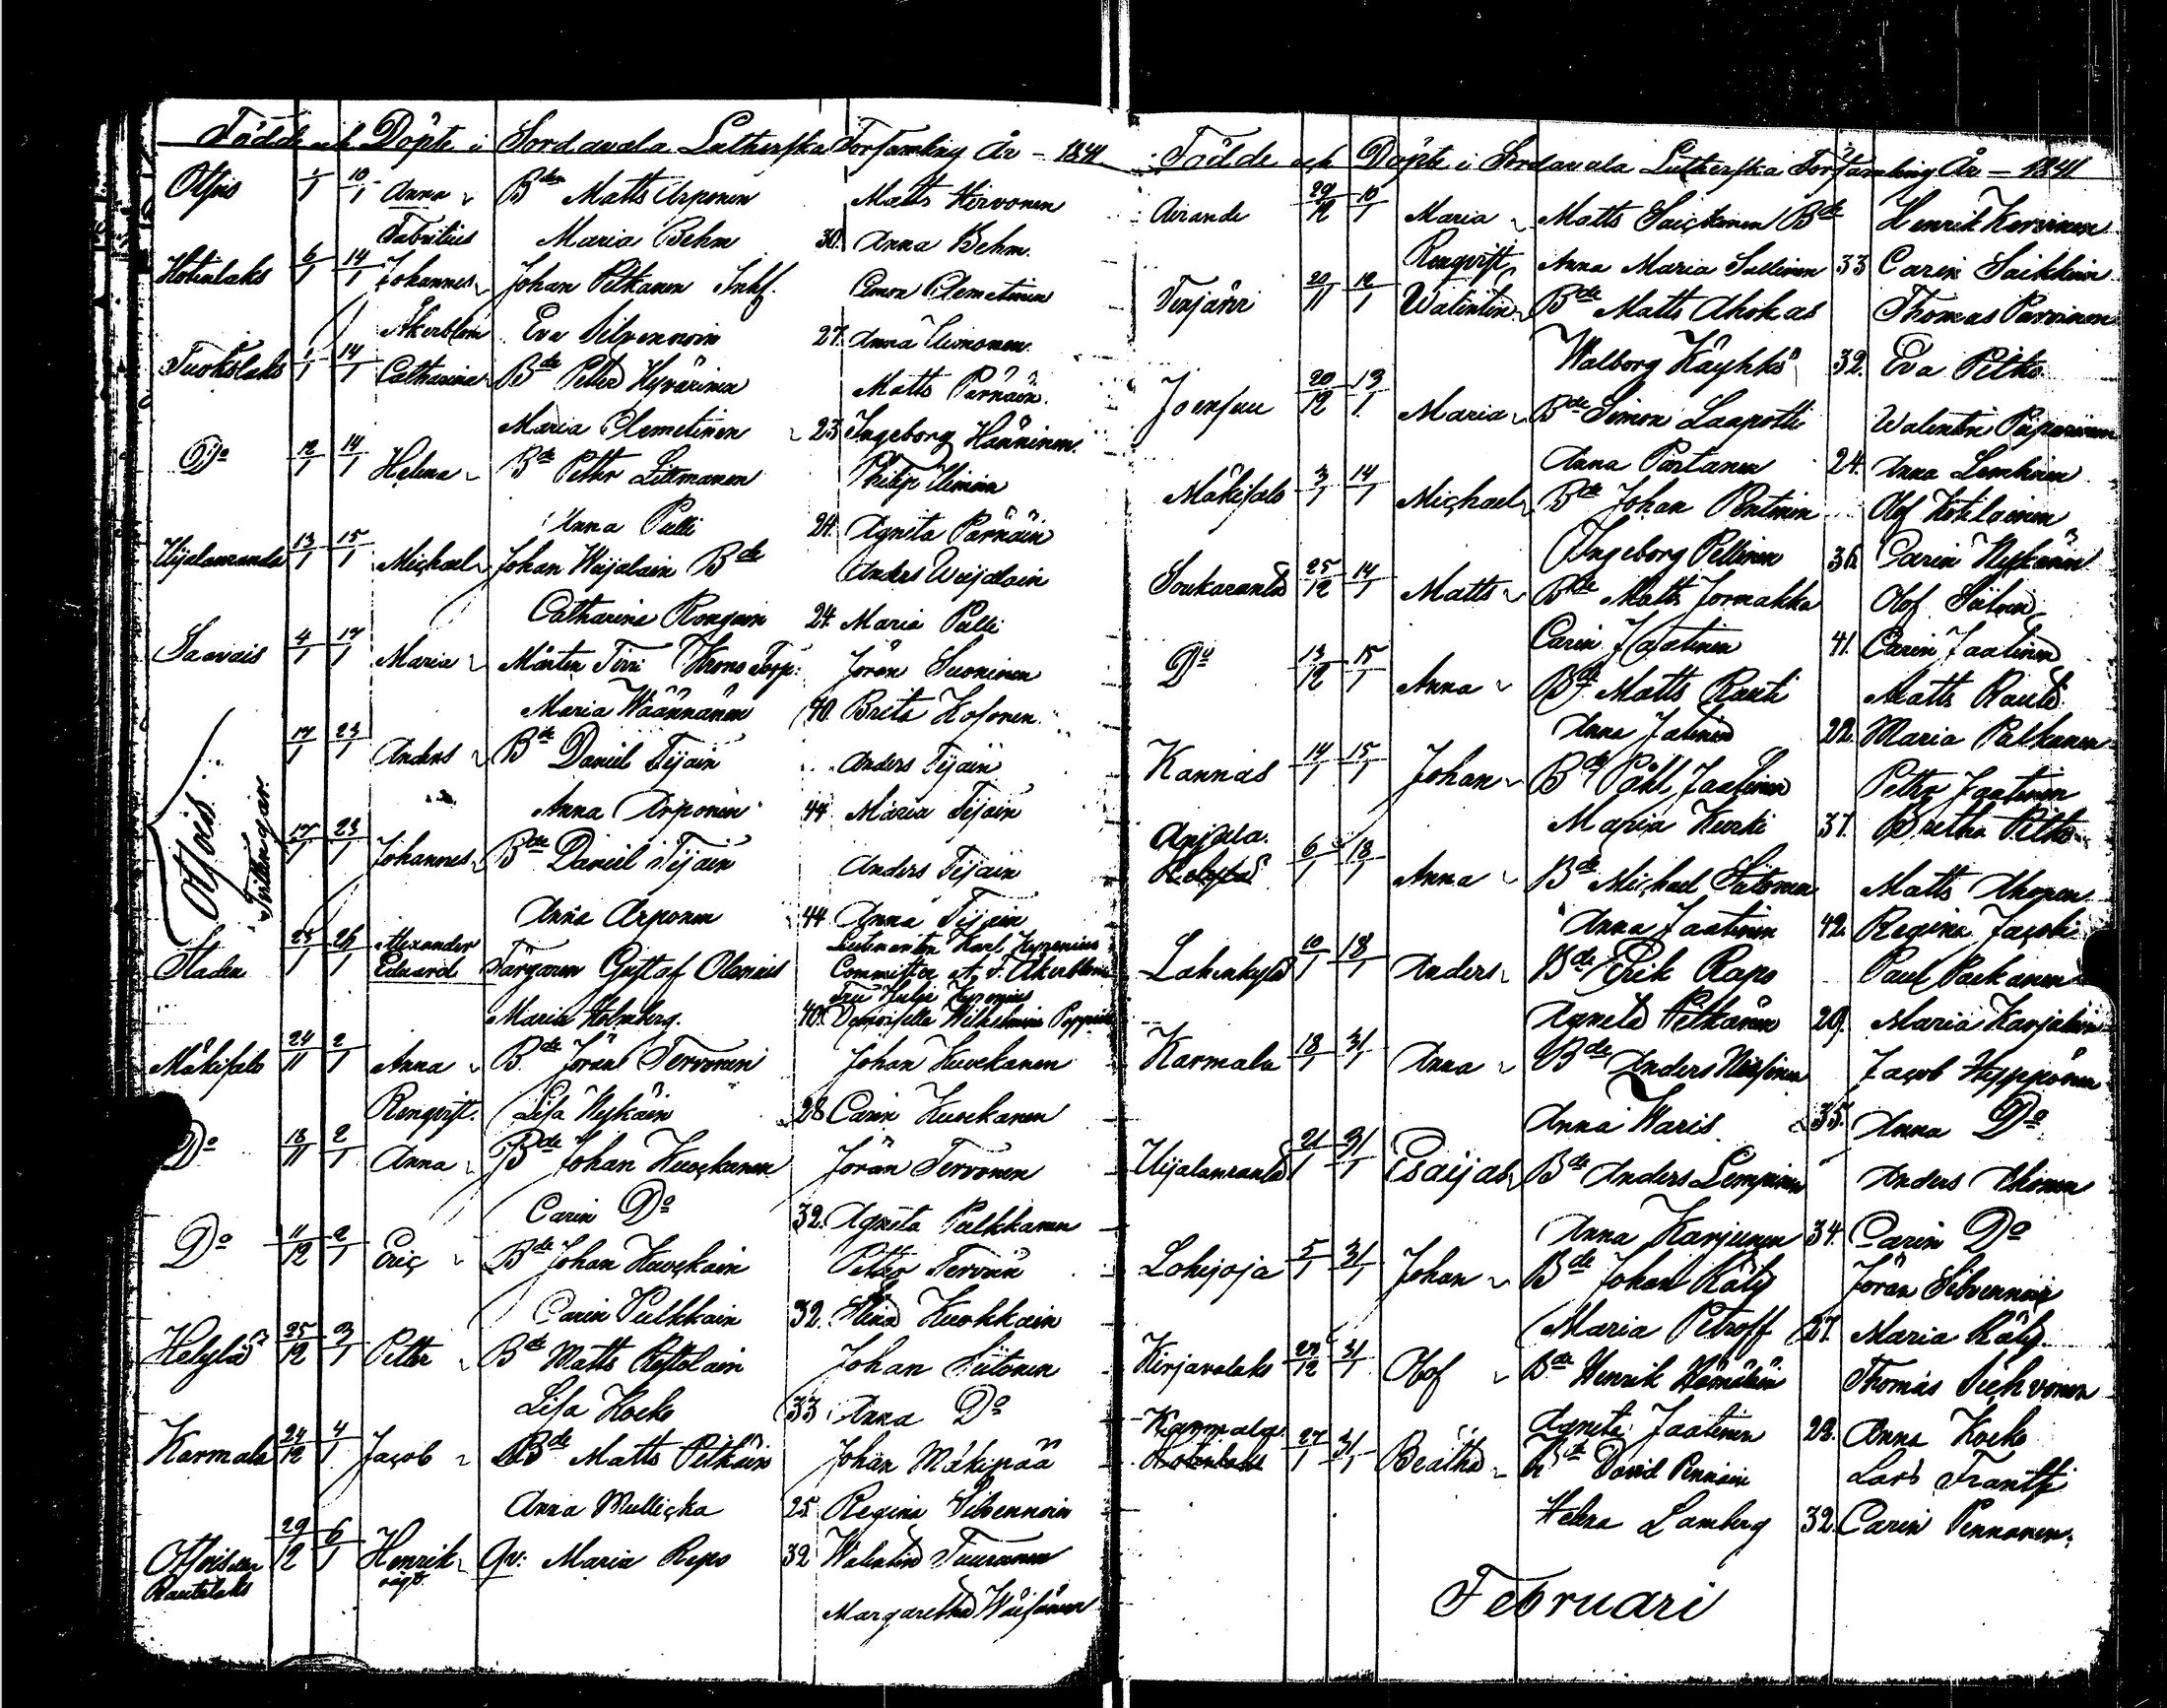 Födde och Döpte i Sordavala Lutherska Församling År - 1841
Otsois 1/1 10/1 Anna Bde Matts Arponen Matts Hirvonen
Fabritius Maria Behm 30. Anna Behm.
Hotinlaks 6/1 14/1 Johannes Johan Pitkänen Inhs. Simon Clemetinen
Åkerblom Eva Silvennoin 27. Anna Simonen
Tuokslaks 1/1 14/1 Catharina Bde Petter Hyvärinen Matts Pärnäin.
Maria Clemetinen 23 Ingeborg Hänninen.
Do 12/1 14/1 Helena Bde Petter Litmanen Philip Simoin
Anna Pulli 24. Agneta Pärnäin
Uijalanranda 13/1 15/1 Michael Johan Waijalain Bde Anders Waijalain
Catharina Rongain 24. Maria Pulli
Saavais 4/1 17/1 Maria Mårten Tirri Krons Torp: Jöran Suoninen
Maria Wäännänen 40. Brita Kosonen
17/1 23/1 Anders Bde Daniel Tijäin Anders Tijäin
Anna Arponen 44 Maria Tijäin
Otsois.
Tvillingar.
17/1 23/1 Johannes Bde Daniel Tijäin Anders Tijäin
Anna Arponen 44 Anna Tijäin
Staden 26/1 Alexander Lieutnanten Karl Hyrenius
Eduard Färgaren Gustaf Olenius Committ A. F. Åkerblom
Fru Julje Hyrenius
Maria Holmberg. 40. Demoiselle Wilhelmina
Mäkisalo 24/11 2/1 Anna Bde Jöran Tervonen Johan Kuvekanen
Renqvist. Lisa Nykäin 28 Carin Kuvekanen
Do 18/11 2/1 Anna Bde Johan Kuvekanen Jöran Tervonen
Carin Do 32. Agneta Pulkkanen
Do 11/12 2/1 Eric Bde Johan Kuvekain Petter Tervoin
Carin Pulkkain 32. Stina Kuokkain
Helylä 25/12 3/1 Petter Bde Matts Ristolain Johan Siitonen
Lisa Kocko 33 Anna Do
Karmala 24/12 4/1 Jacob Bde Matts Pitkäin Johan Mäkipää
Anna Mullicka 25 Regina Silvennoin
Otsoisen 29/12 6/1 Henrik Qv: Maria Repo 32 Walentin Tuuranen
Rautalaks oägt Margaretha Wäisänen
Födde och Döpte i Sordavala Lutherska Församling År - 1841
Airanda 29/12 10/1 Maria Matts Saickonen Bde Henrik Korvinen
Renqvist Anna Maria Sallinen 33 Carin Saikkoin
Tenjärvi 20/11 12/1 Walentin Bde Matts Ahokas Thomas Parvinen
Walborg Käyhkö 32. Eva Pitko
Joensuu 20/12 13/1 Maria Bde Simon Laapotti Walentin Piiparinen
Anna Partanen 24. Anna Lemhinen
Mäkisalo 3/1 14/1 Michael Bde Johan Pentinen Olof Kotilainen
Ingeborg Pellinen 36. Carin Nykänen
Soukaranda 25/12 14/1 Matts Bde Matts Jormakka Olof Siiton
Carin Jaatinen 41. Carin Jaatinen
Do 13/12 15/1 Anna Bde Matts Rauti Matts Rauti
Anna Jatinen 22. Maria Pulkanen
Kannas 14/1 15/1 Johan Bde Påhl Jaatinen Petter Jaatinen
Maria Kurki 37. Bretha Pitko
Anjala.
Helylä 6/1 18/1 Anna Bde Michael Siitonen Matts Ahonen
Anna Jaatinen 42. Regina
Lahenkylä 10/1 18/1 Anders Bde Erik Rapo Paul Paekanen
Agneta Pitkänen 29. Maria Karjalain
Karmala 18/1 31/1 Anna Bde Anders Nissinen Jacob Hyppönen
Anna Waris 35. Anna Do
Uijalanranda 21/1 31/1 Esaijas Bde Anders Lempinen Anders Ahonen
Anna Karjunen 34. Carin Do
Lohijoja 5/1 31/1 Johan Bde Johan Räty Jöran Silvennoin
Maria Petroff 27. Maria Räty
Kirjavalaks 27/12 31/1 Olof Bde Henrik Hämäläin Thomas Sichvonen
Agneta Jaatinen 22. Anna Kocko
Karmala.
Hotinlaks 27/1 31/1 Beatha Bde David Pennäin Lars Frantsi
Helena Lamberg 32. Carin Pennanen
Februari